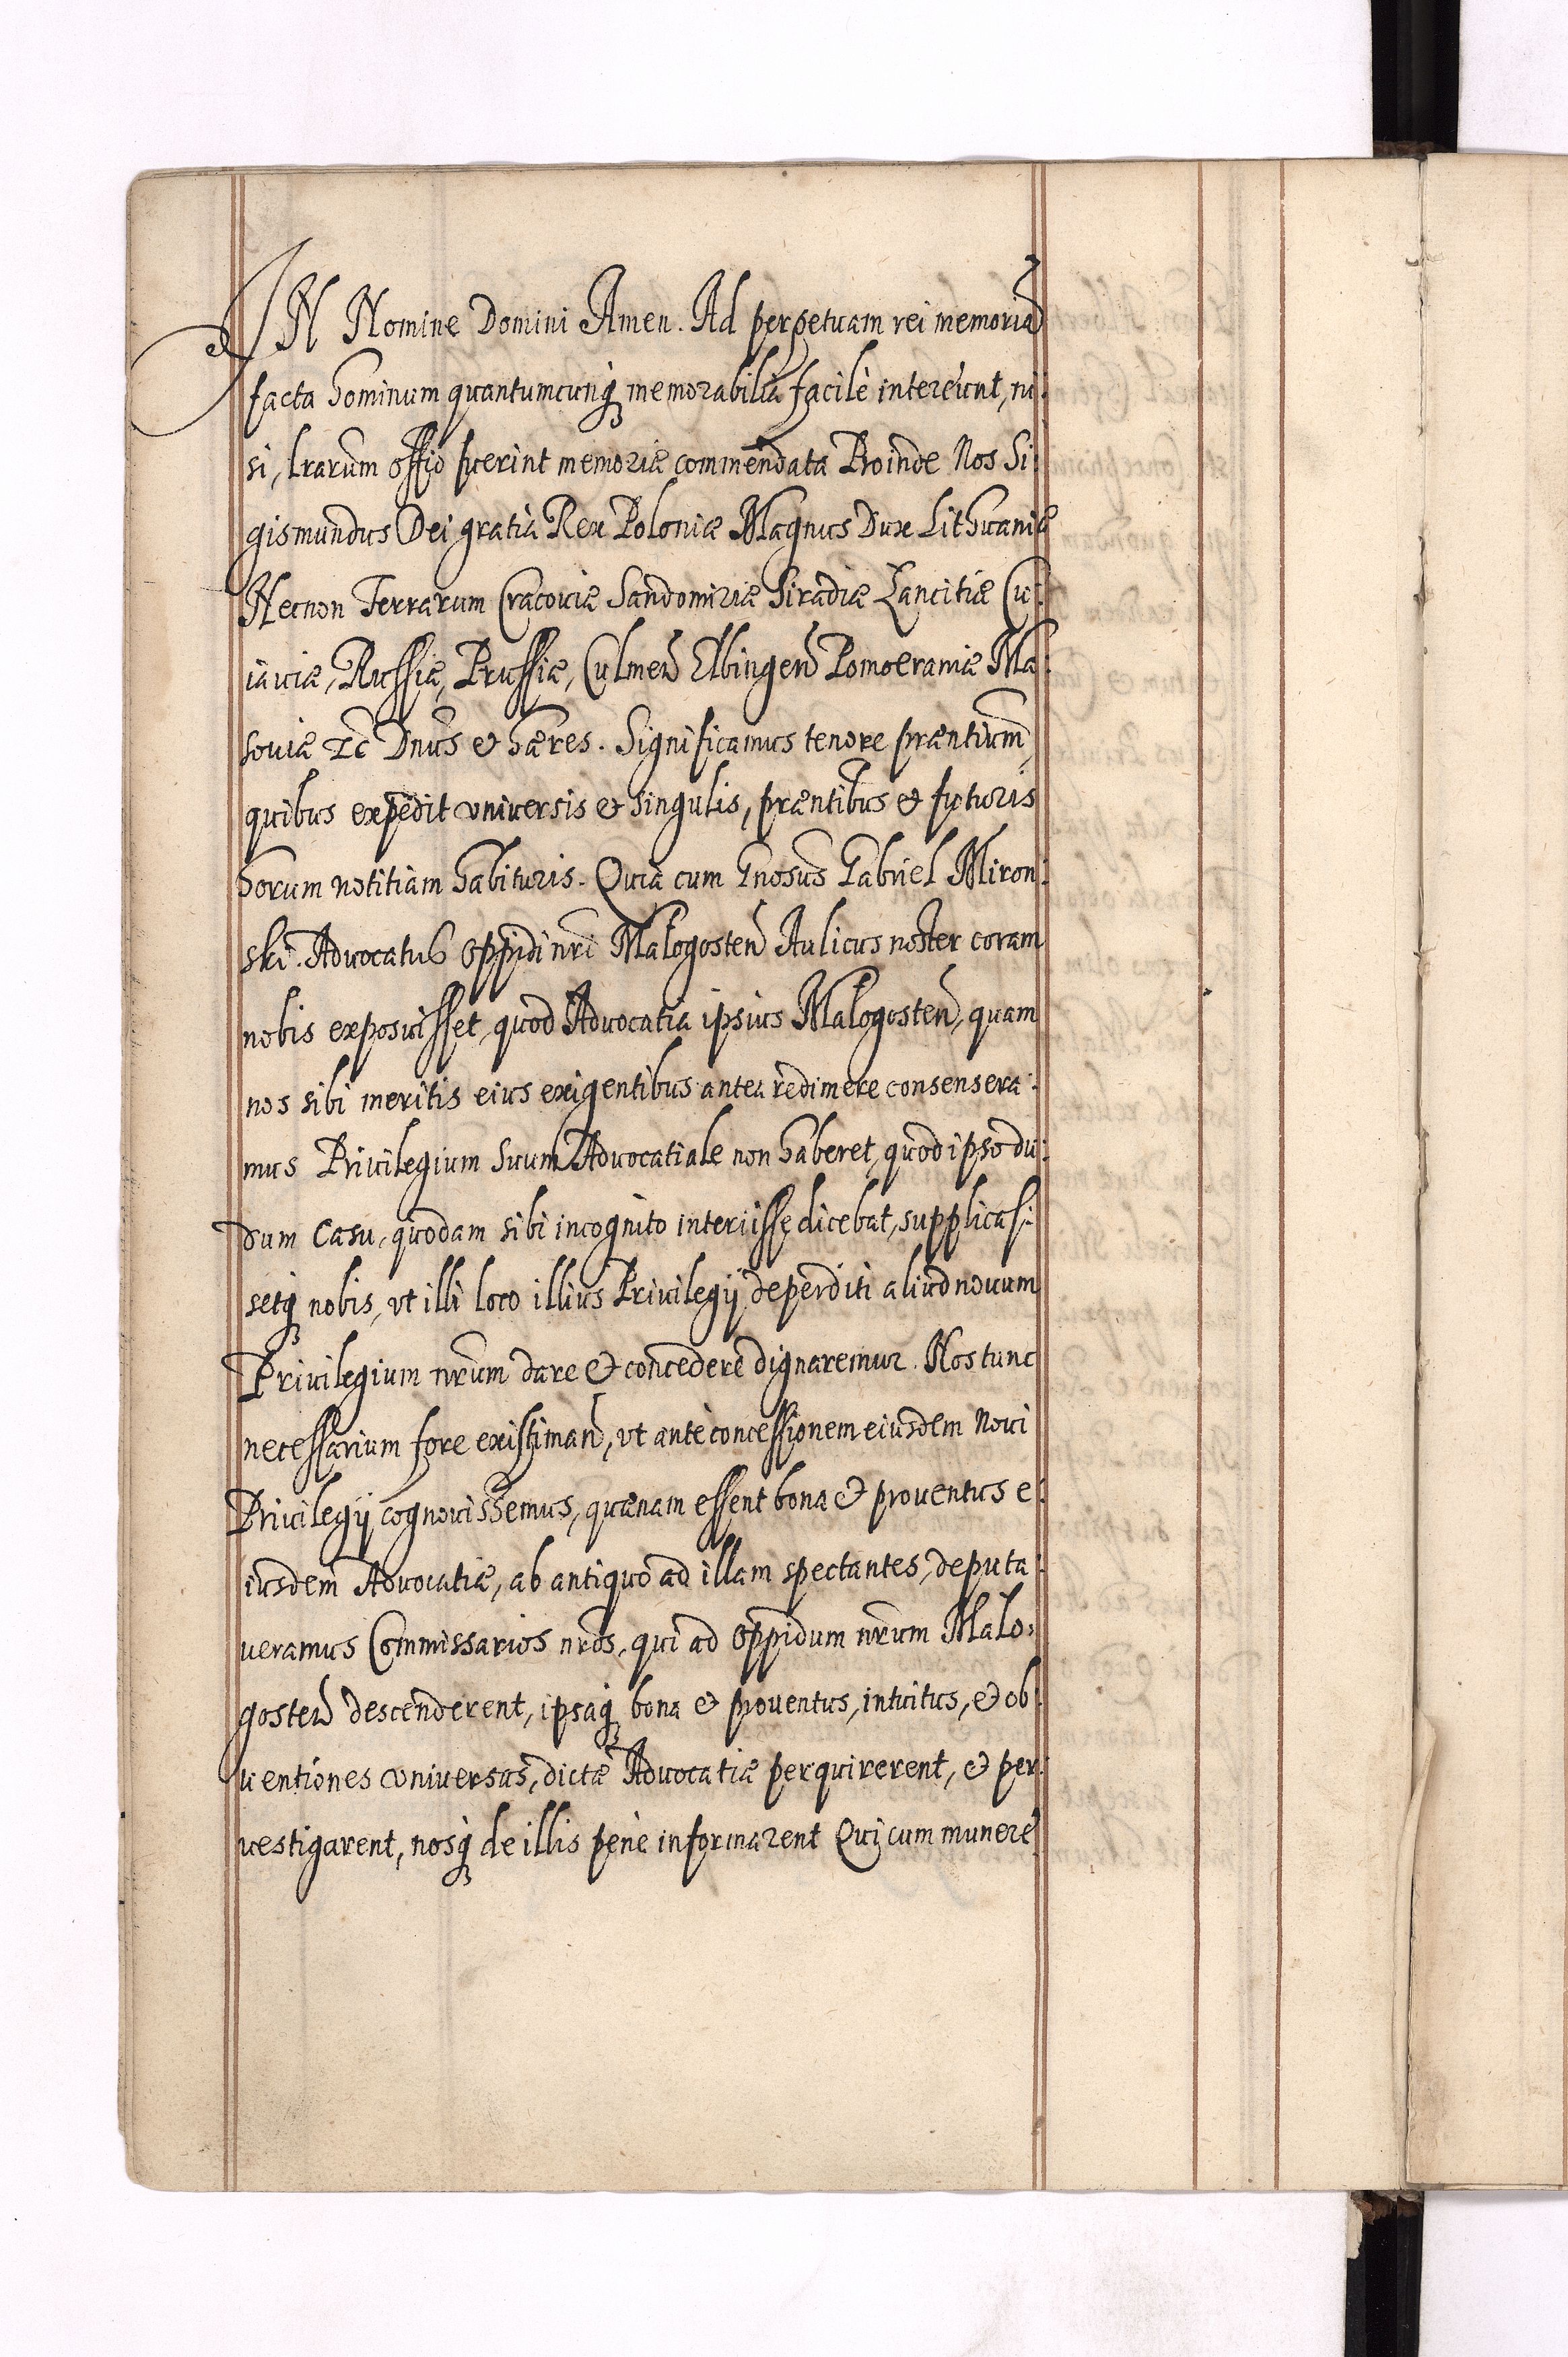 IN Nomine Domini Amen. Ad perpetuam rei memoriã
facta hominum quantumcunq; memorabilia facile intereunt, ni:
si, lrarum offio fuerint memoriæ commendata Proinde Nos Si:
gismundus Dei gratia Rex Poloniæ Magnus Dux Lithuaniæ
Necnon Terrarum Cracoviæ Sandomiriæ Siradiæ Lancitiæ Cu:
iaviæ, Russiæ, Prussiæ, Culmeñ Elbingeñ Pomoeraniæ Ma:
soviæ &c Dnus & hæres. Significamus tenore præntium,
quibus expedit universis & singulis, præntibus & futuris
horum notitiam habituris. Quia cum Gnosus Gabriel Miron:
ski. Advocatus Oppidi nri Malogosteñ Aulicus noster coram
nobis exposuisset, quod Advocatia ipsius Malogosteñ, quam
nos sibi meritis eius exigentibus antea redimere consensera:
mus Privilegium suum Advocatiale non haberet, quod ipso du:
dum casu, quodam sibi incognito interiisse dicebat, supplicas:
setq; nobis, ut illi loco illius Privilegij deperditi aliud novum
Privilegium nrum dare & concedere dignaremur. Nos tunc
necessarium fore existimañ, ut ante concessionem eiusdem Novi
Privilegij cognovissemus, quænam essent bona & proventus e:
iusdem Advocatiæ, ab antiquo ad illam spectantes, deputa:
veramus Commissarios nros, qui ad Oppidum nrum Malo:
gosteñ descenderent, ipsaq; bona & proventus, intuitus, & ob:
ventiones universas, dictæ Advocatiæ perquirerent, & per:
vestigarent, nosq; de illis pene informarent Qui cum munere